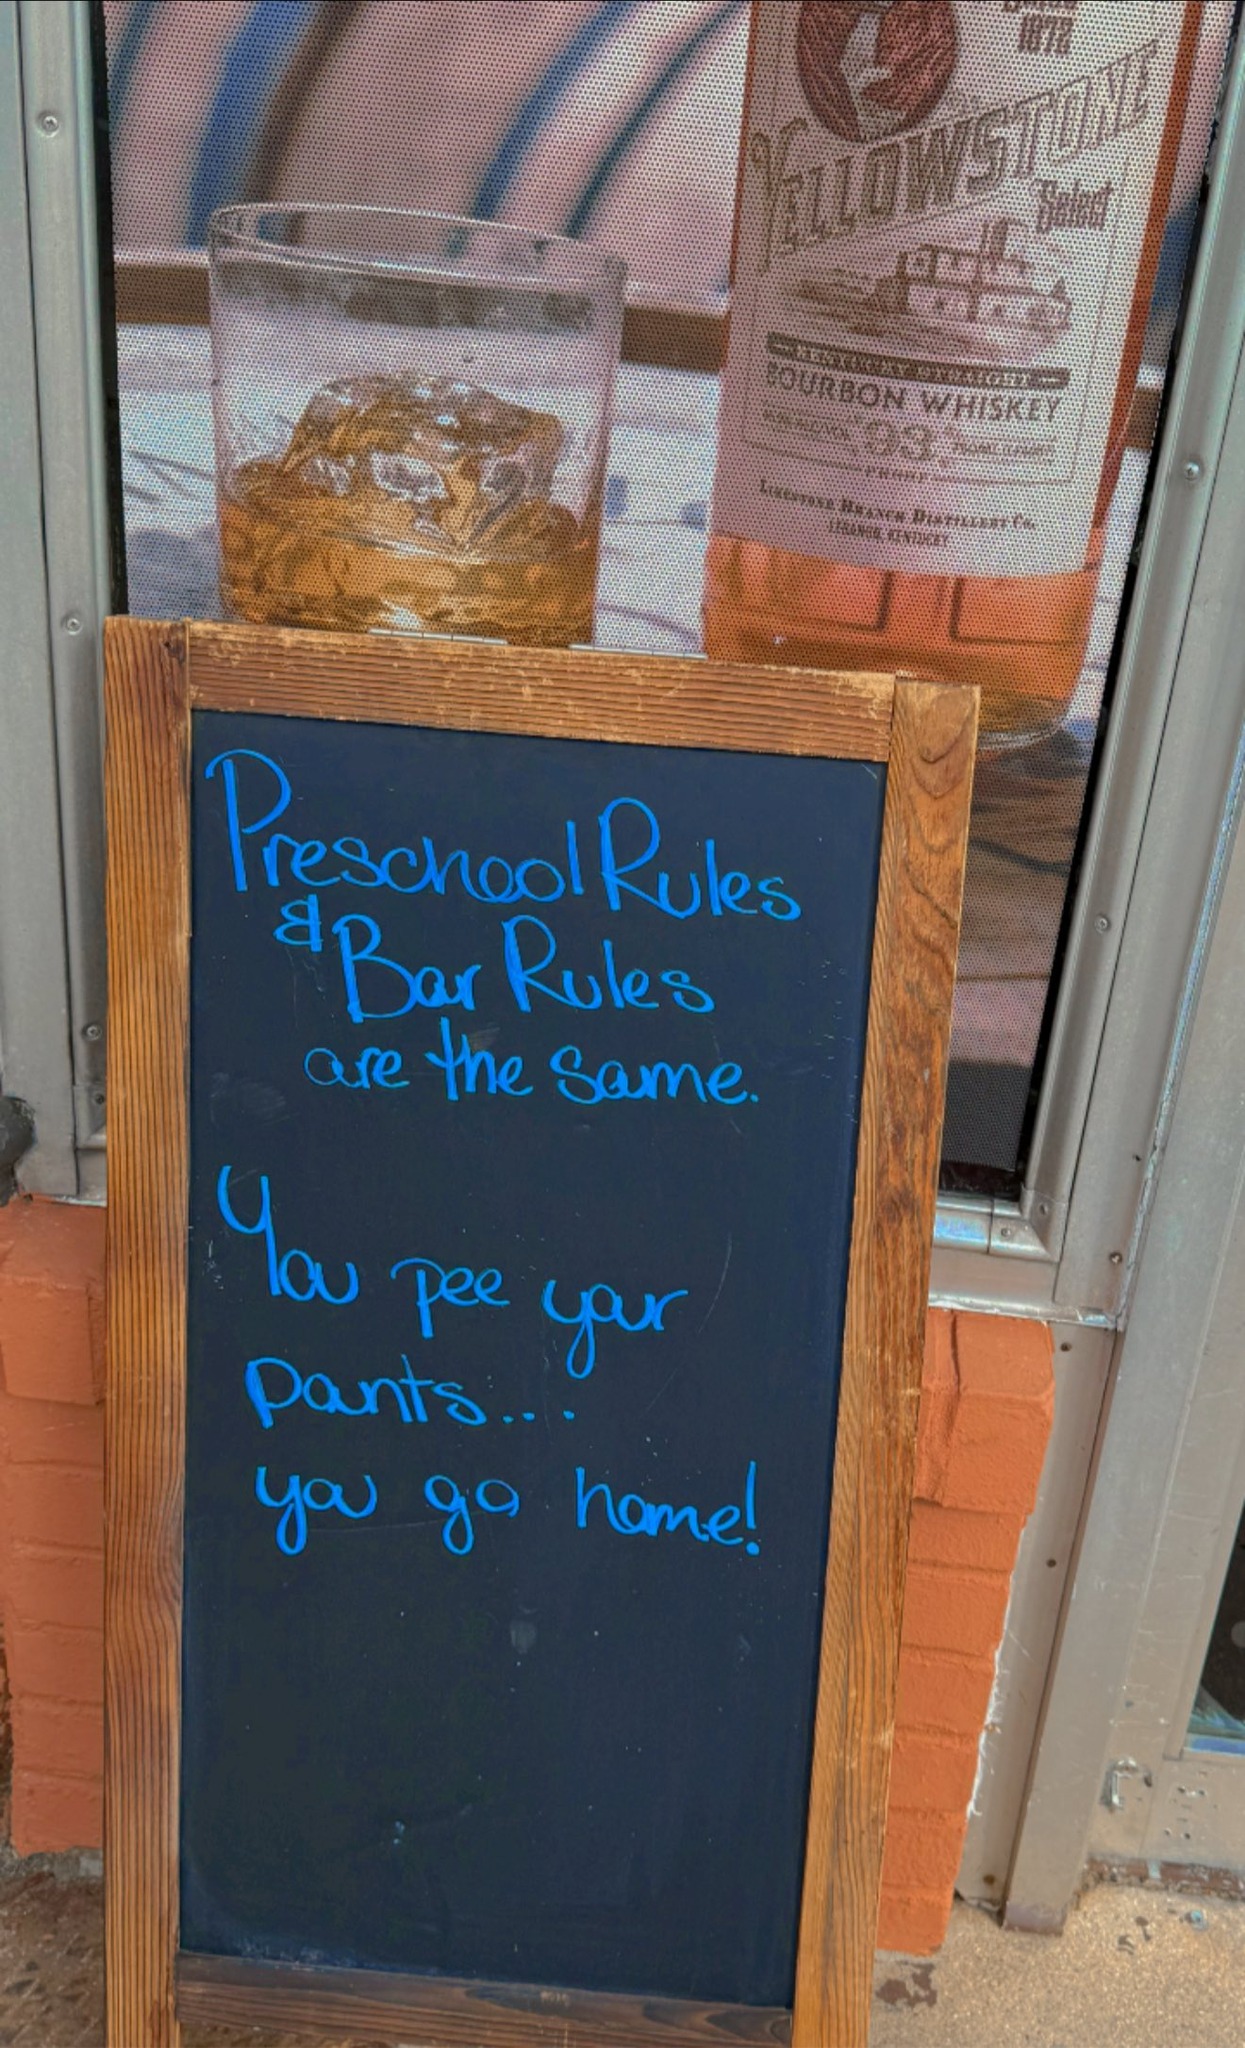 1872
YELLOWSTONE
Select
KENTUCKY STRAIGHT
BOURBON WHISKEY
93
PROOF
LIMESTONE BRANCH DISTILLERY Co.
LEBANON, KENTUCKY
Preschool Rules
& Bar Rules
are the same.
You pee your
pants...
you go home!